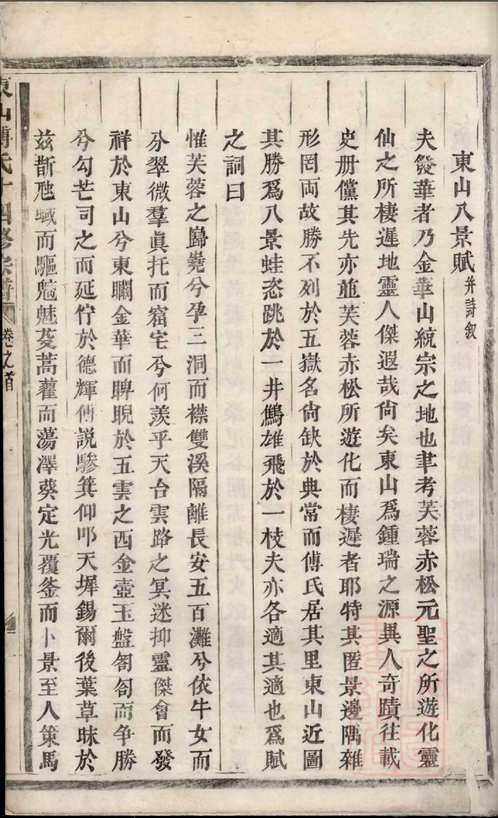 東山八景賦 并詩敘
夫發華者乃金華山統宗之地也聿考芙蓉赤松元聖之所遊化靈
仙之所棲遲地靈人傑遐哉尚矣東山為鍾瑞之源異人奇蹟往載
史册儻其先亦並芙蓉赤松所遊化而棲遲者耶特其匿景邊隅雜
形罔兩故勝不列於五嶽名尚缺於典常而傅氏居其里東山近圖
其勝為八景蛙恣跳於一井鷦雄飛於一枝夫亦各適其適也為賦
之詞曰
惟芙蓉之巋嶤兮孕三洞而襟雙溪隔離長安五百灘兮依牛女而
分翠微羣真托而窟宅兮何羨乎天台雲路之冥迷抑靈傑會而發
祥於東山兮東矙金華而睥睨於五雲之西金壺玉盤匒匌而争勝
兮勾芒司之而延佇於德輝傅説騎箕仰叩天墀錫爾後葉草昧於
茲斮虺蜮而驅魑魅芟蒿藋而蕩澤葵定光覆釜而卜景至人策馬
東山傅氏十四修宗譜 卷之首